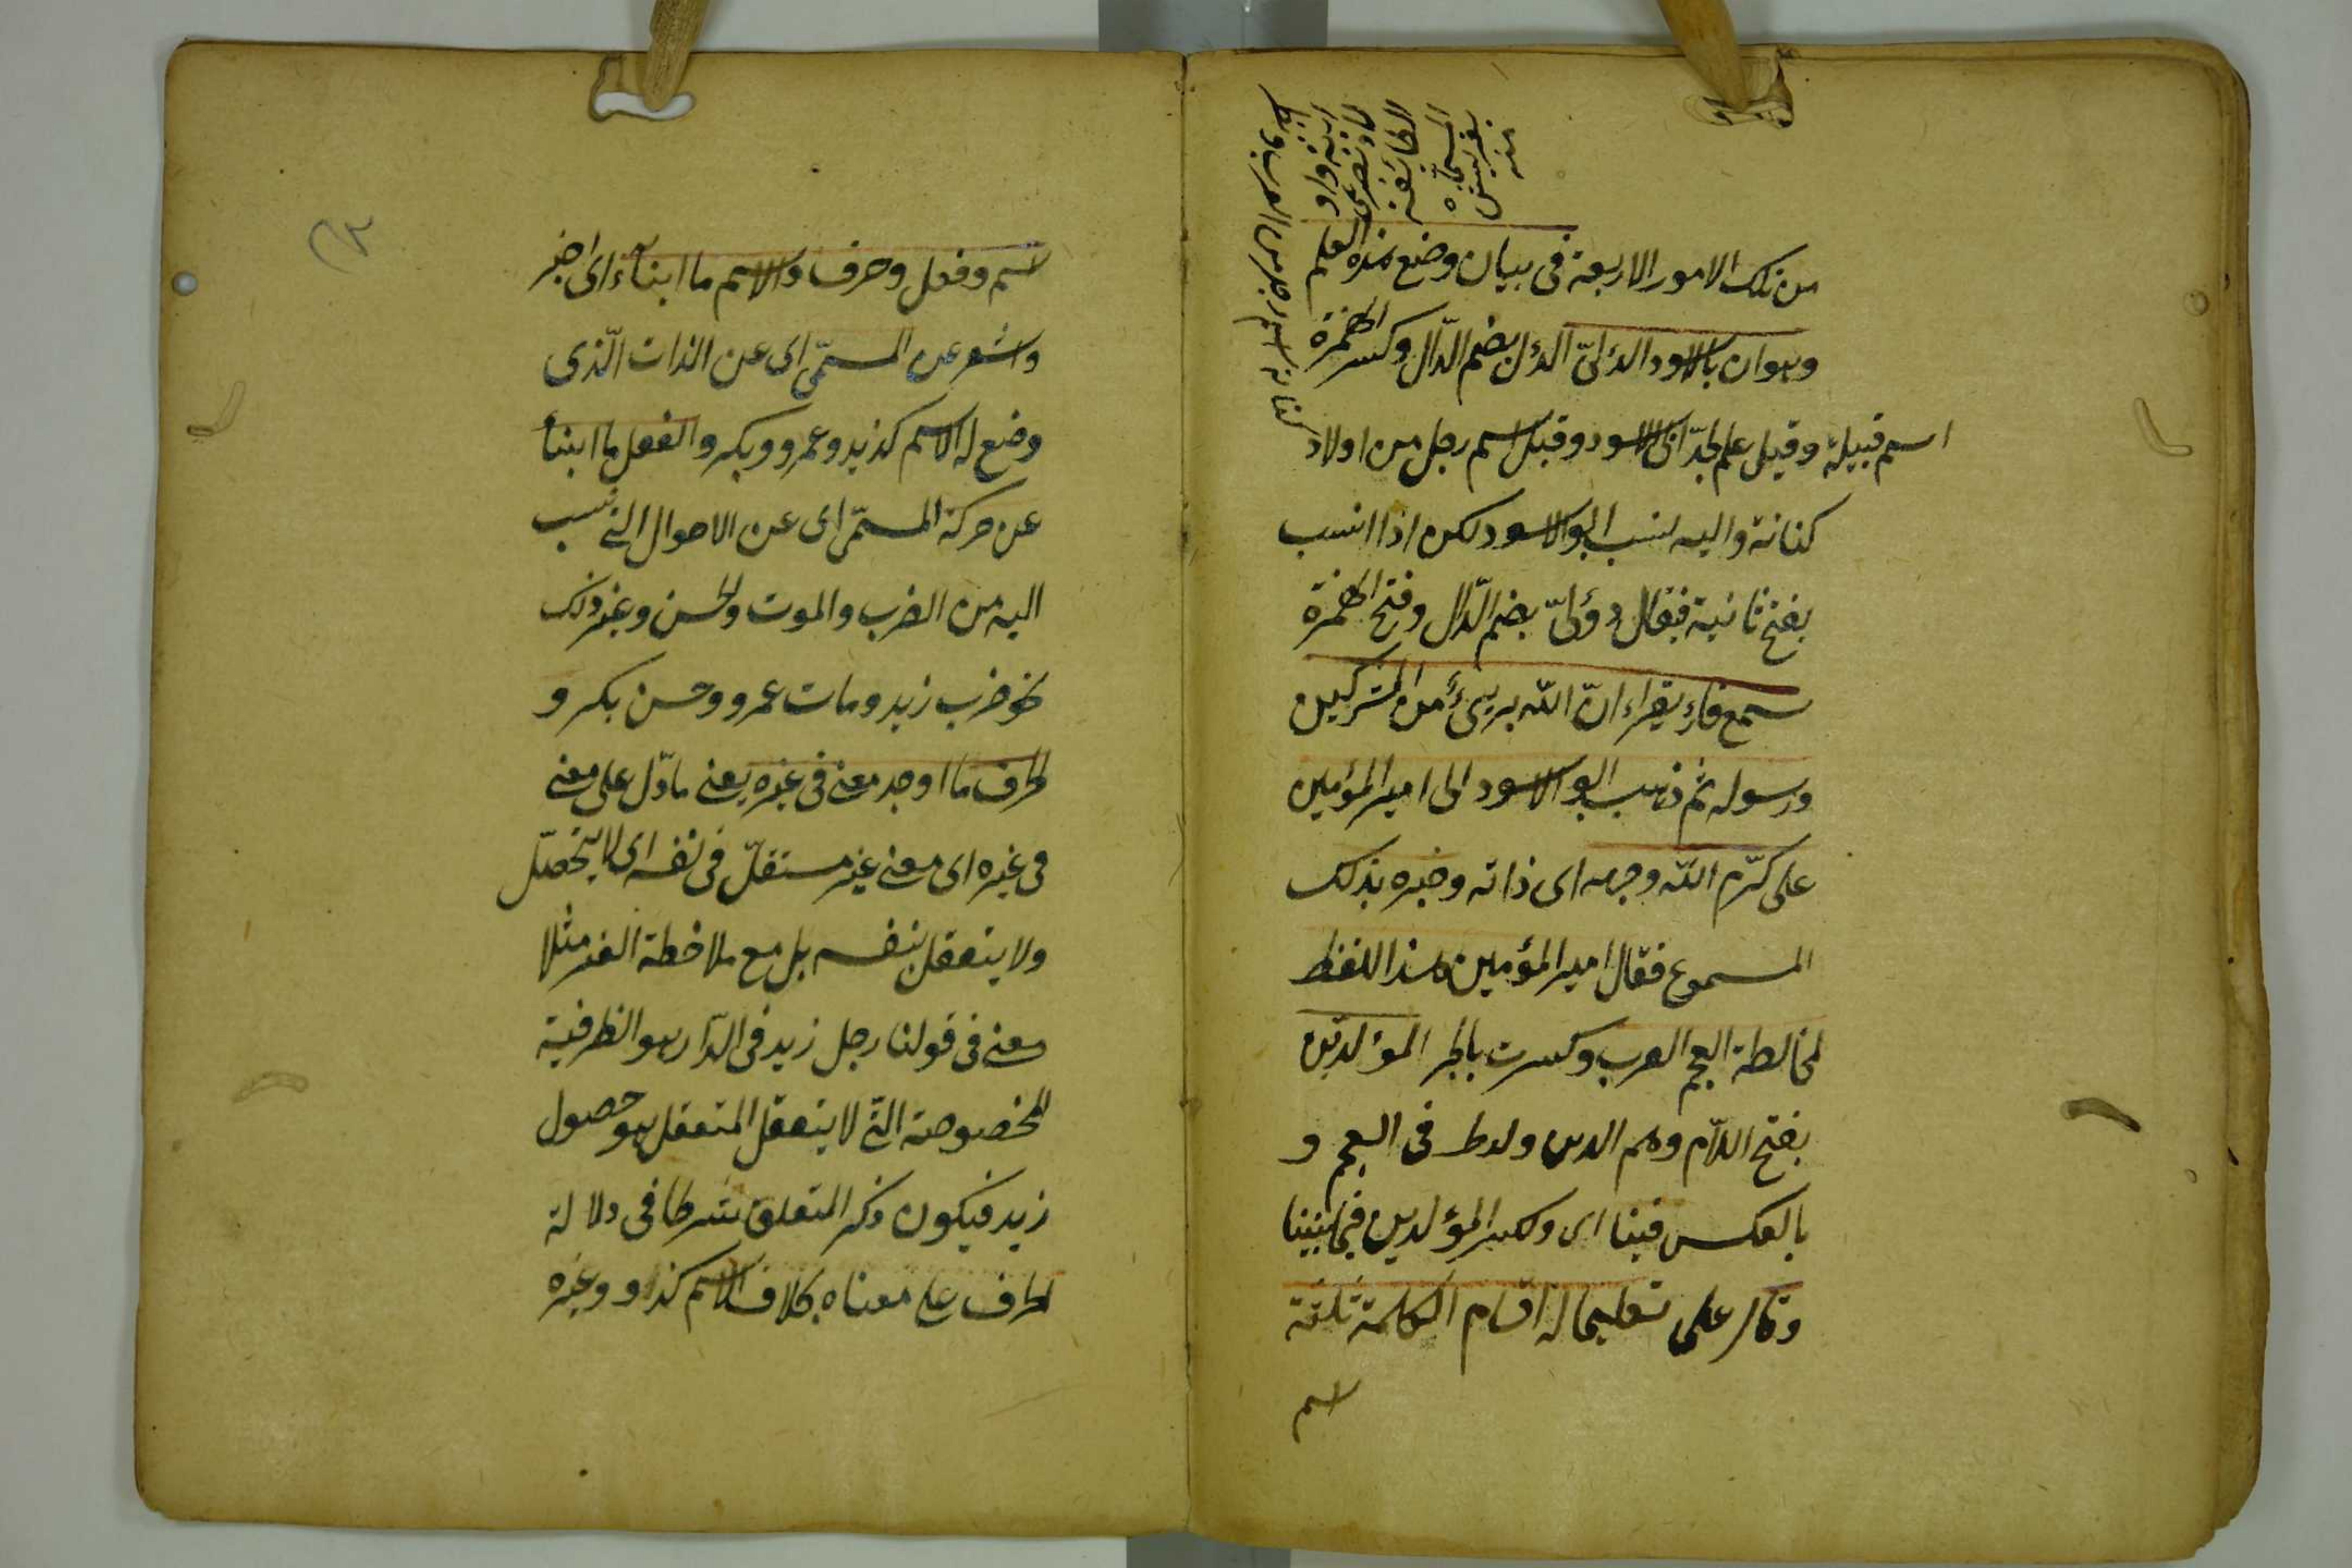 من تلك الامور الاربعة فى بيان وضع هذه العلم
وهو ان بالاسود الدئلىّ الدئل بضم الدّال وكسر الهمزة
اسم قبيلة وقيل علم لجدّ ابى الاسود وقيل اسم رجل من اولاد
كنانة واليه نسب ابو الاسود لكن اذا انسب
بفتح ثانية فيقال دؤلىّ بضم الدّال وفتح الهمزة
سمع قارٍ يقراء انّ الله بريىٌ من المشركين
ورسوله ثم ذهب ابو الاسود الى امير المؤمنين
على كرّم الله وجهه اى ذاته وخبره بذلك
المسموع فقال امير المؤمنين هذا اللفظ
لمخالطة العجم العرب وكسرت بالجر المؤلدين
بفتح اللّام وهم الدين ولدط فى العجم و
بالعكس فينا اى وكسر المؤلدين فيما بيننا
وقال على تعليما له اقسام الكلمة ثلثة
اسم
اسم وفعل وحرف والاسم ما ابنآء اى اخبر
واشعر عن المسمّى اى عن الذات الّذى
وضع له الاسم كزيد وعمرو وبكر والفعل ما ابنأ
عن حركة المسمّى اى عن الاحوال التى نسب
اليه من الضرب والموت والحسن وغير ذلك
نحو ضرب زيد ومات عمرو وحسن بكر و
الحرف ما اوجد معنى فى غيره يعنى ما دّل على معنى
فى غيره اى معنى غير مستقلّ فى نفسه اى لا يتحصّل
ولا يتعقل بنفسه بل مع ملاحظة الغير مثلا
معنى فى قولنا رجل زيد فى الدّار هو الظرفية
المخصوصة التى لا يتعقل المتعقل هو حصول
زيد فيكون ذكر المتعلق شرطا فى دلالة
الحرف على معناه بخلاف الاسم كذا و وغيره